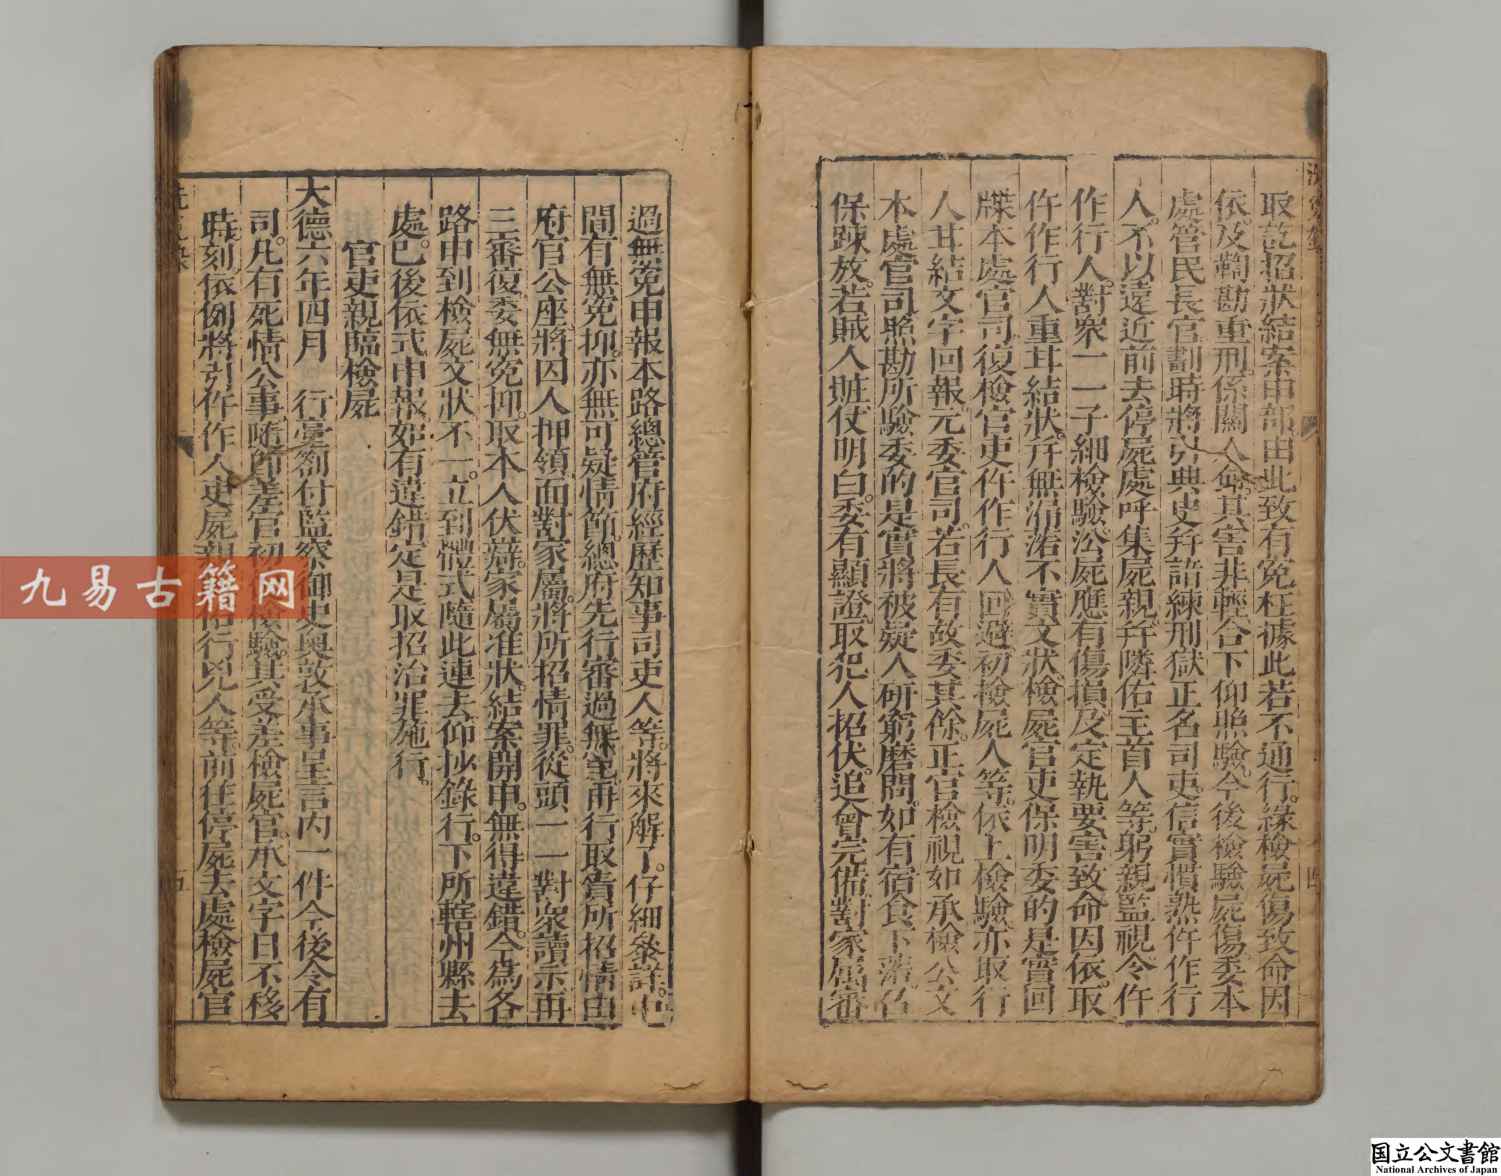 取訖招狀結案申部由此致有冤枉據此若不通行緣檢屍傷致命因
依及鞫勘重刑係關人命其害非輕合下仰照驗今後檢驗屍傷委本
處管民長官劃時將引典史并諳練刑獄正名司吏信實慣熟仵作行
人不以遠近前去停屍處呼集屍親并隣佑主首人等躬親監視令仵
作行人對衆一一子細檢驗沿屍應有傷損及定執要害致命因依取
仵作行人重甘結狀并無漏落不實文狀檢屍官吏保明委的是實回
牒本處官司復檢官吏仵作行人回避初檢屍人等依上檢驗亦取行
人甘結文字回報元委官司若長有故委其餘正官檢視如承檢公文
本處官司照勘所驗委的是實將被疑人研窮磨問如有宿食下落召
保踈放若賊人贓仗明白委有顯證取犯人招伏追會完備對家屬審
過無冤申報本路總管府經歷知事司吏人等將來解了仔細參詳中
間有無冤抑亦無可疑情節總府先行審過無冤再行取責所招情由
府官公座將囚人押領面對家屬將所招情罪從頭一一對衆讀示再
三審復委無冤抑取本人伏辯家屬准狀結案開申無得違錯今為各
路申到檢屍文狀不一立到體式隨此連去仰抄錄行下所轄州縣去
處已後依式申報如有違錯定是取招治罪施行
官吏親臨檢屍
大德六年四月 行臺劄付監察御史奧敦承事呈言內一件今後令有
司凡有死情公事隨節差官初檢驗其受差檢屍官承文字日不移
時刻依例將引仵作人吏屍親行兇人等前往停屍去處檢屍官
四
五
九易古籍网
国立公文書館
National Archives of Japan